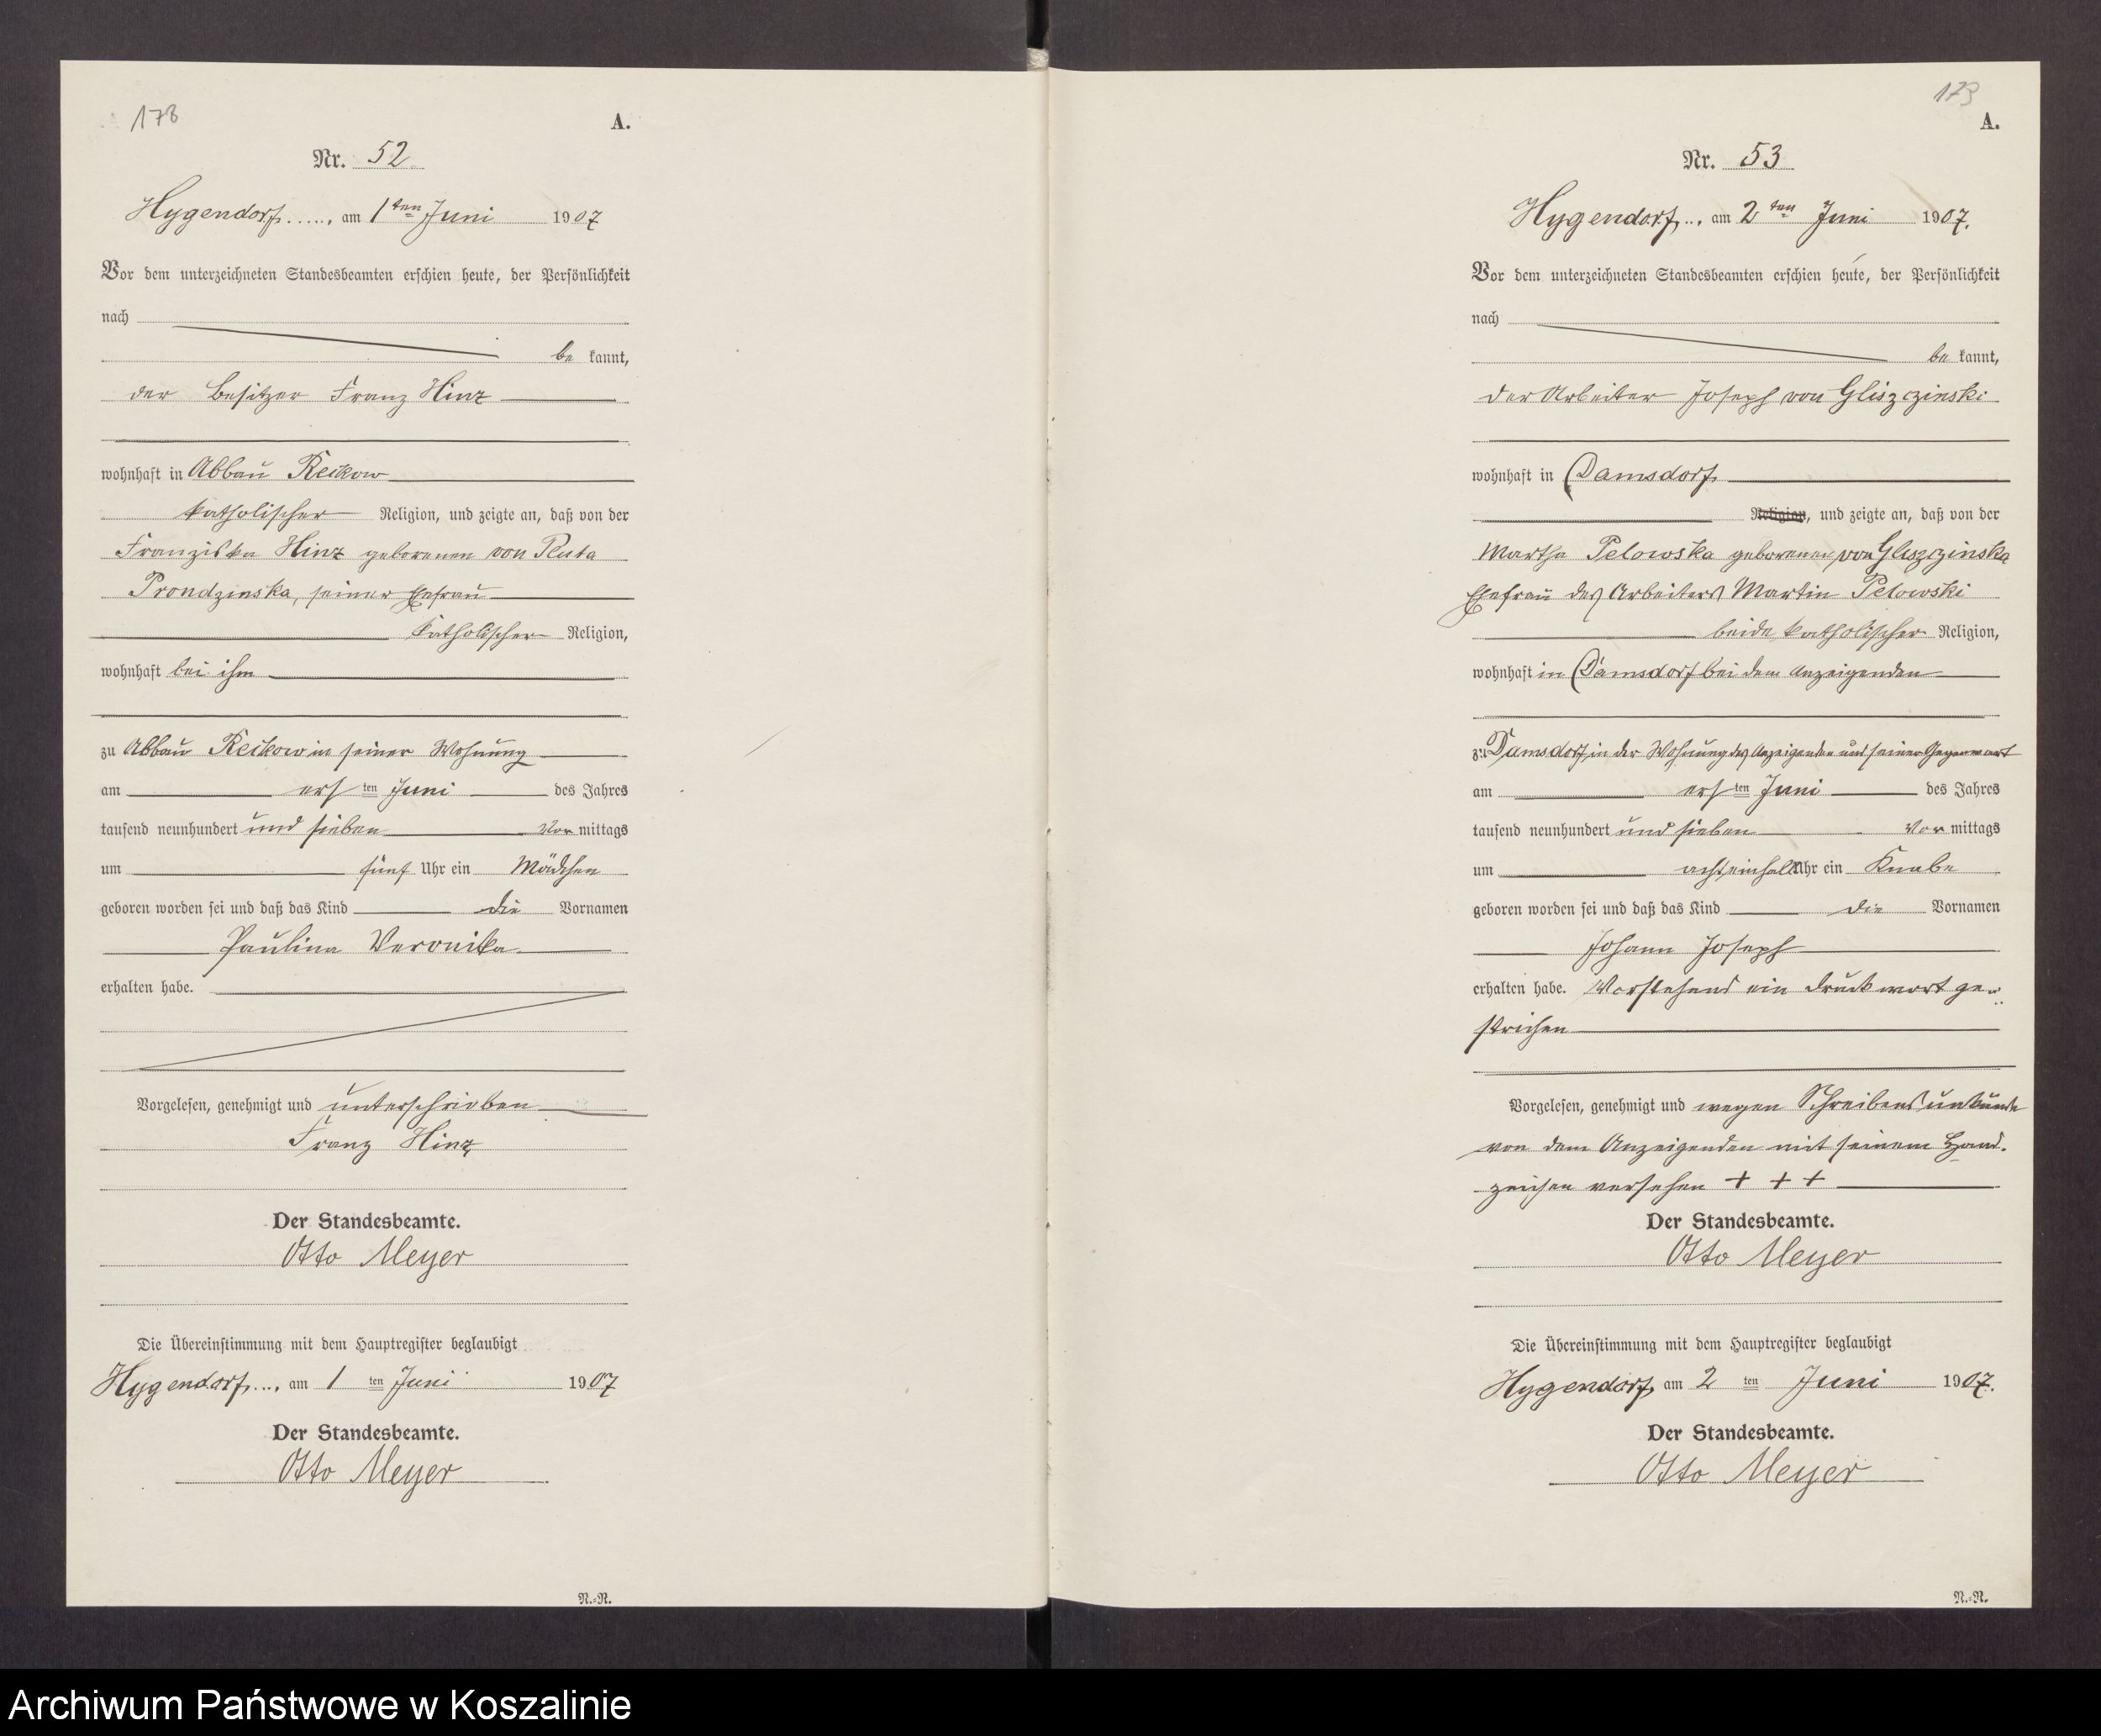 178
A.
Nr. 52
Hygendorf ....., am 1ten Juni 1907
Vor dem unterzeichneten Standesbeamten erschien heute, der Persönlichkeit
nach
be kannt,
der Besitzer Franz Hinz
wohnhaft in Abbau Reckow
katholischer Religion, und zeigte an, daß von der
Franziska Hinz geborenen von Pluta
Prondzinska, seiner Ehefrau
katholischer Religion,
wohnhaft bei ihm
zu Abbau Reckow in seiner Wohnung
am ersten Juni des Jahres
tausend neunhundert und sieben Vor mittags
um fünf Uhr ein Mädchen
geboren worden sei und daß das Kind die Vornamen
Paulina Veronika
erhalten habe.
Vorgelesen, genehmigt und unterschrieben
Franz Hinz
Der Standesbeamte.
Otto Meyer
Die Übereinstimmung mit dem Hauptregister beglaubigt
Hygendorf ...., am 1 ten Juni 1907
Der Standesbeamte.
Otto Meyer
N.=N.
173
A.
Nr. 53
Hygendorf .., am 2ten Juni 1907.
Vor dem unterzeichneten Standesbeamten erschien heute, der Persönlichkeit
nach
be kannt,
der Arbeiter Joseph von Gliszczinski
wohnhaft in Damsdorf
Religion, und zeigte an, daß von der
Martha Pelowska geborenen von Gliszczinska
Ehefrau des Arbeiters Martin Pelowski
beide katholischer Religion,
wohnhaft in Damsdorf bei dem Anzeigenden
zu Damsdorf in der Wohnung des Anzeigenden und seiner Gegenwart
am ersten Juni des Jahres
tausend neunhundert und sieben Vor mittags
um achteinhalb Uhr ein Knabe
geboren worden sei und daß das Kind die Vornamen
Johann Joseph
erhalten habe. Vorstehend ein Druckwort ge-
strichen
Vorgelesen, genehmigt und wegen Schreibensunkunde
von dem Anzeigenden mit seinem Hand-
zeichen versehen + + +
Der Standesbeamte.
Otto Meyer
Die Übereinstimmung mit dem Hauptregister beglaubigt
Hygendorf, am 2 ten Juni 1907.
Der Standesbeamte.
Otto Meyer
N.=N.
Archiwum Państwowe w Koszalinie